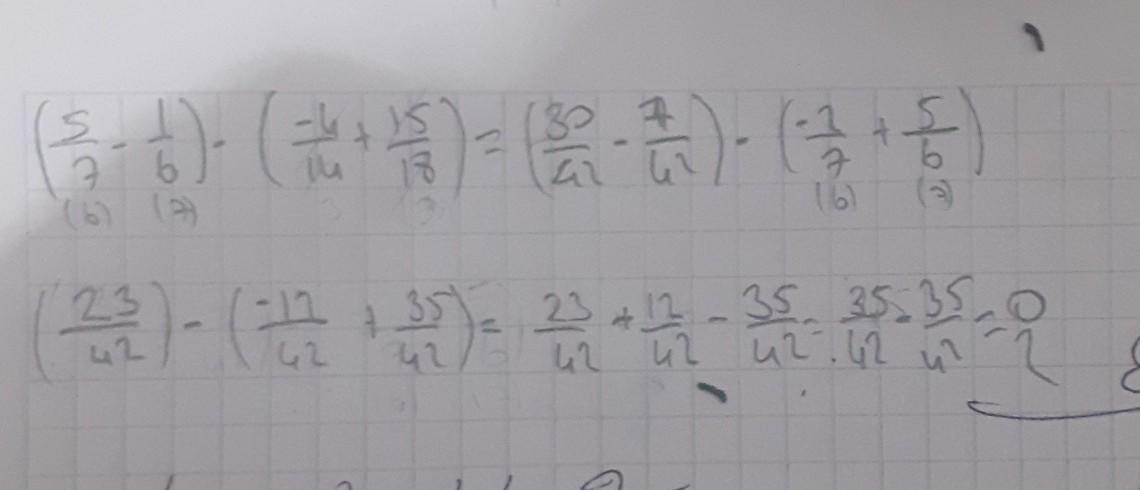 (5/7 - 1/6) - (-4/14 + 15/18) = (30/42 - 7/42) - (-2/7 + 5/6)
(6) (7) (6) (7)
(23/42) - (-12/42 + 35/42) = 23/42 + 12/42 - 35/42 = 35/42 - 35/42 = 0